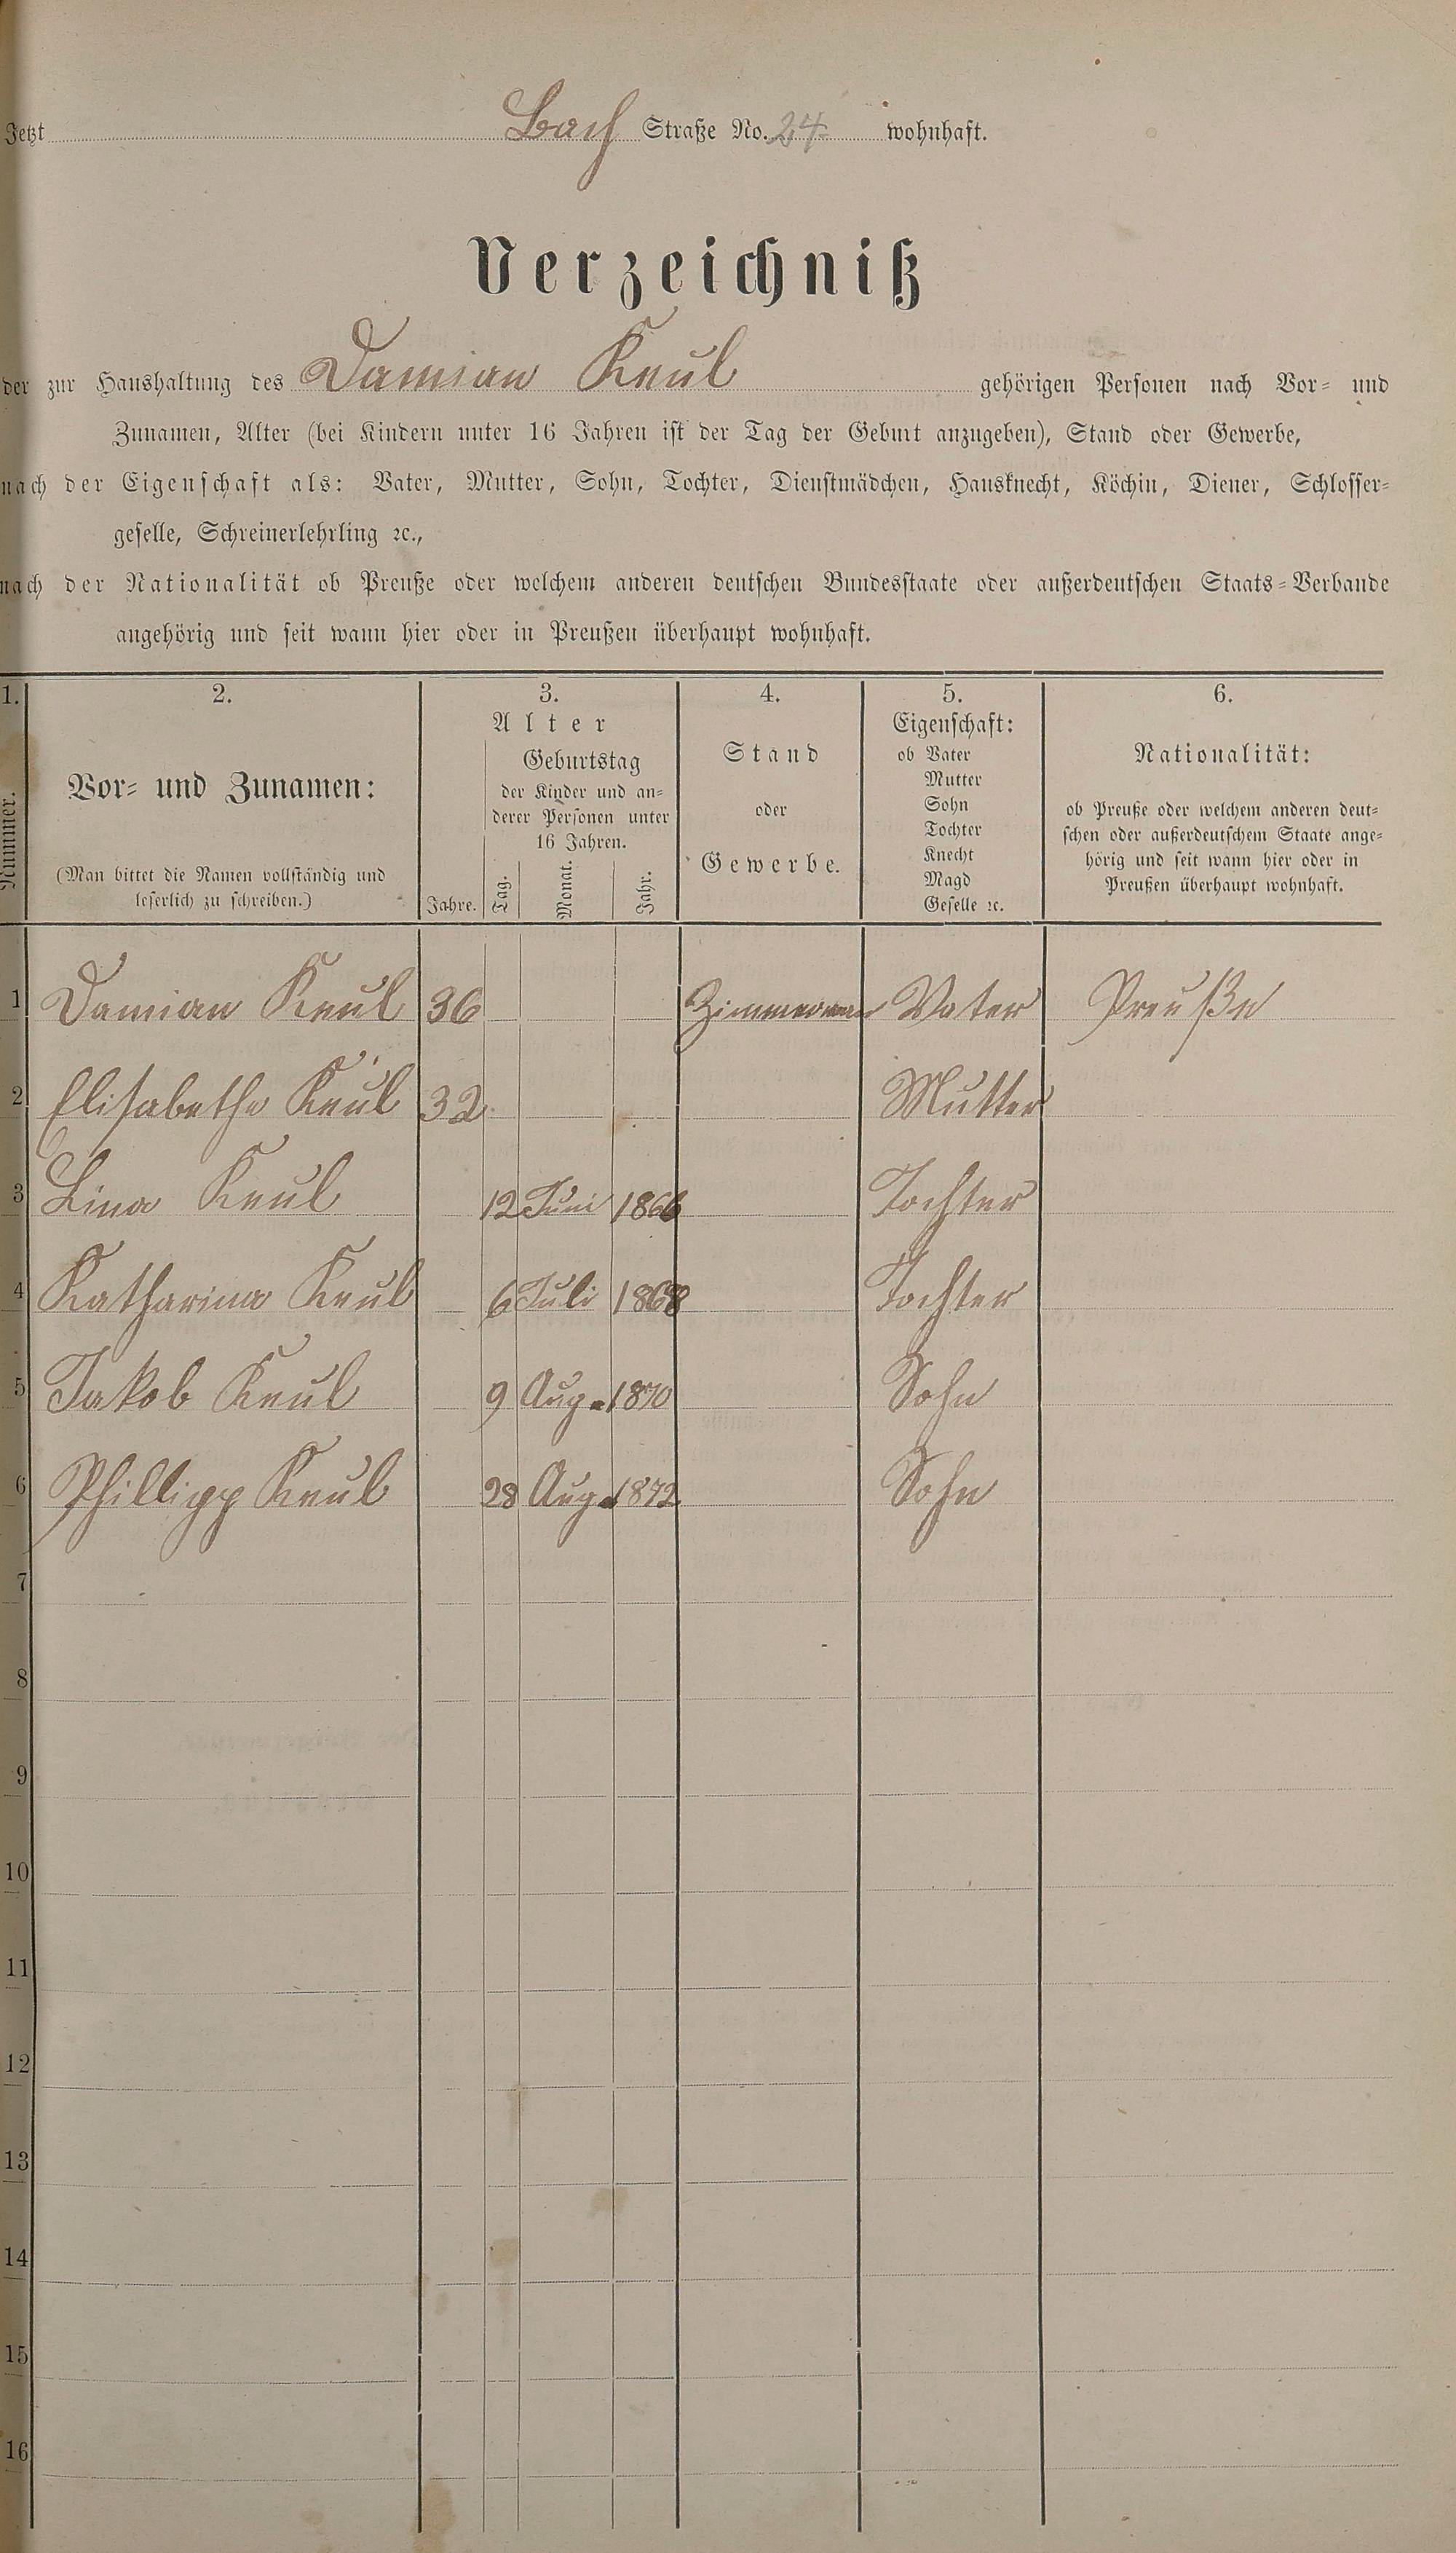 Jetzt Bach Straße No. 24 wohnhaft.
Verzeichniß
der zur Haushaltung des Damian Keul gehörigen Personen nach Vor- und
Zunamen, Alter (bei Kindern unter 16 Jahren ist der Tag der Geburt anzugeben), Stand oder Gewerbe,
nach der Eigenschaft als: Vater, Mutter, Sohn, Tochter, Dienstmädchen, Hausknecht, Köchin, Diener, Schlosser-
geselle, Schreinerlehrling ꝛc.,
nach der Nationalität ob Preuße oder welchem anderen deutschen Bundesstaate oder außerdeutschen Staats-Verbande
angehörig und seit wann hier oder in Preußen überhaupt wohnhaft.
1.
Nummer.
2.
Vor- und Zunamen:
(Man bittet die Namen vollständig und
leserlich zu schreiben.)
3.
Alter
Jahre.
Geburtstag
der Kinder und an-
derer Personen unter
16 Jahren.
Tag.
Monat.
Jahr.
4.
Stand
oder
Gewerbe.
5.
Eigenschaft:
ob Vater
Mutter
Sohn
Tochter
Knecht
Magd
Geselle ꝛc.
6.
Nationalität:
ob Preuße oder welchem anderen deut-
schen oder außerdeutschem Staate ange-
hörig und seit wann hier oder in
Preußen überhaupt wohnhaft.
1 Damian Keul 36 Zimmerman Vater Preuße
2 Elisabetha Keul 32 Mutter
3 Lina Keul 12 Juni 1866 Tochter
4 Katharina Keul 6 Juli 1868 Tochter
5 Jakob Keul 9 Aug. 1870 Sohn
6 Phillipp Keul 28 Aug. 1872 Sohn
7
8
9
10
11
12
13
14
15
16